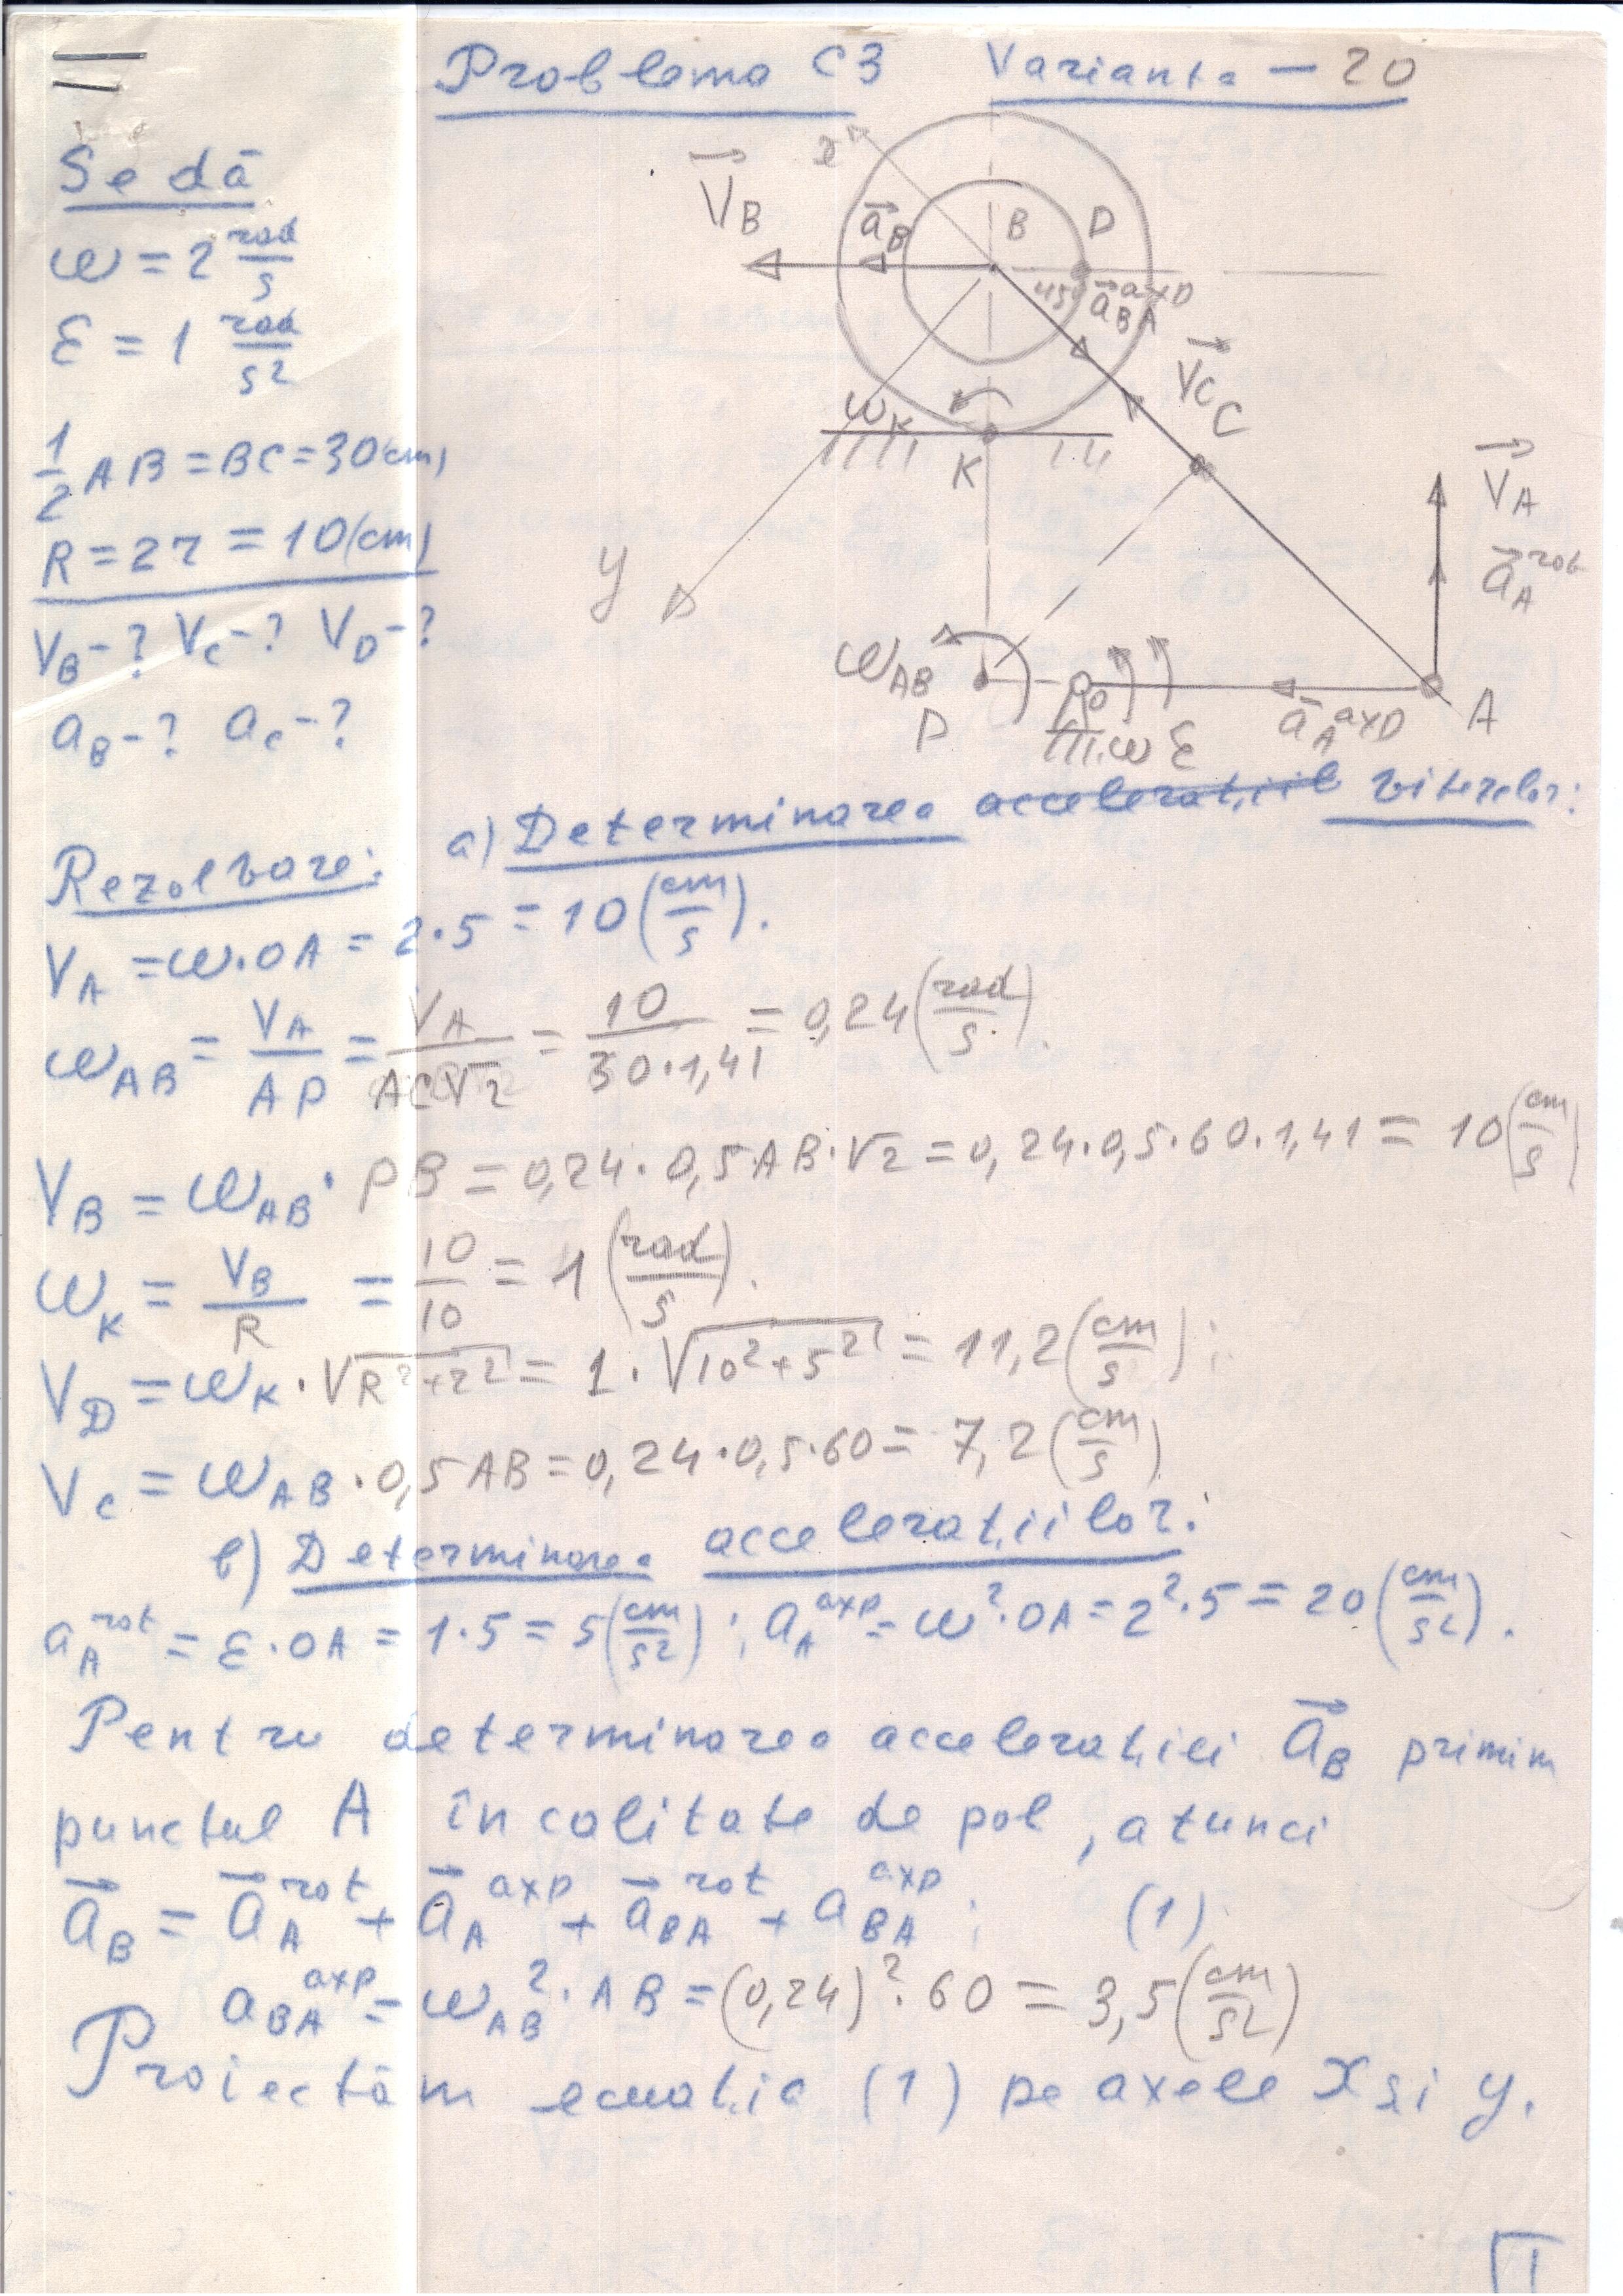 Problema C3 Varianta - 20
Se dă
ω = 2 rad/s
ε = 1 rad/s²
1/2 AB = BC = 30(cm)
R = 2r = 10(cm)
V_B - ? V_C - ? V_D - ?
a_B - ? a_C - ?
x
V⃗_B
a⃗_B
B
D
45°
a⃗_BA^axp
V⃗_C
C
ω_K
K
y
V⃗_A
a⃗_A^rot
ω_AB
P
O
ω ε
a⃗_A^axp
A
a) Determinarea accelerațiil vitezelor:
Rezolvare:
V_A = ω·OA = 2·5 = 10(cm/s).
ω_AB = V_A/AP = V_A/AC√2 = 10/30·1,41 = 0,24(rad/s).
V_B = ω_AB·PB = 0,24·0,5AB·√2 = 0,24·0,5·60·1,41 = 10(cm/s)
ω_K = V_B/R = 10/10 = 1(rad/s).
V_D = ω_K·√R²+r² = 1·√10²+5² = 11,2(cm/s);
V_C = ω_AB·0,5AB = 0,24·0,5·60 = 7,2(cm/s)
b) Determinarea accelerațiilor:
a_A^rot = ε·OA = 1·5 = 5(cm/s²); a_A^axp = ω²·OA = 2²·5 = 20(cm/s²).
Pentru determinarea accelerației a⃗_B primim
punctul A în calitate de pol, atunci
a⃗_B = a⃗_A^rot + a⃗_A^axp + a⃗_BA^rot + a_BA^axp; (1)
a_BA^axp = ω_AB²·AB = (0,24)²·60 = 3,5(cm/s²)
Proiectăm ecuația (1) pe axele x și y.
1